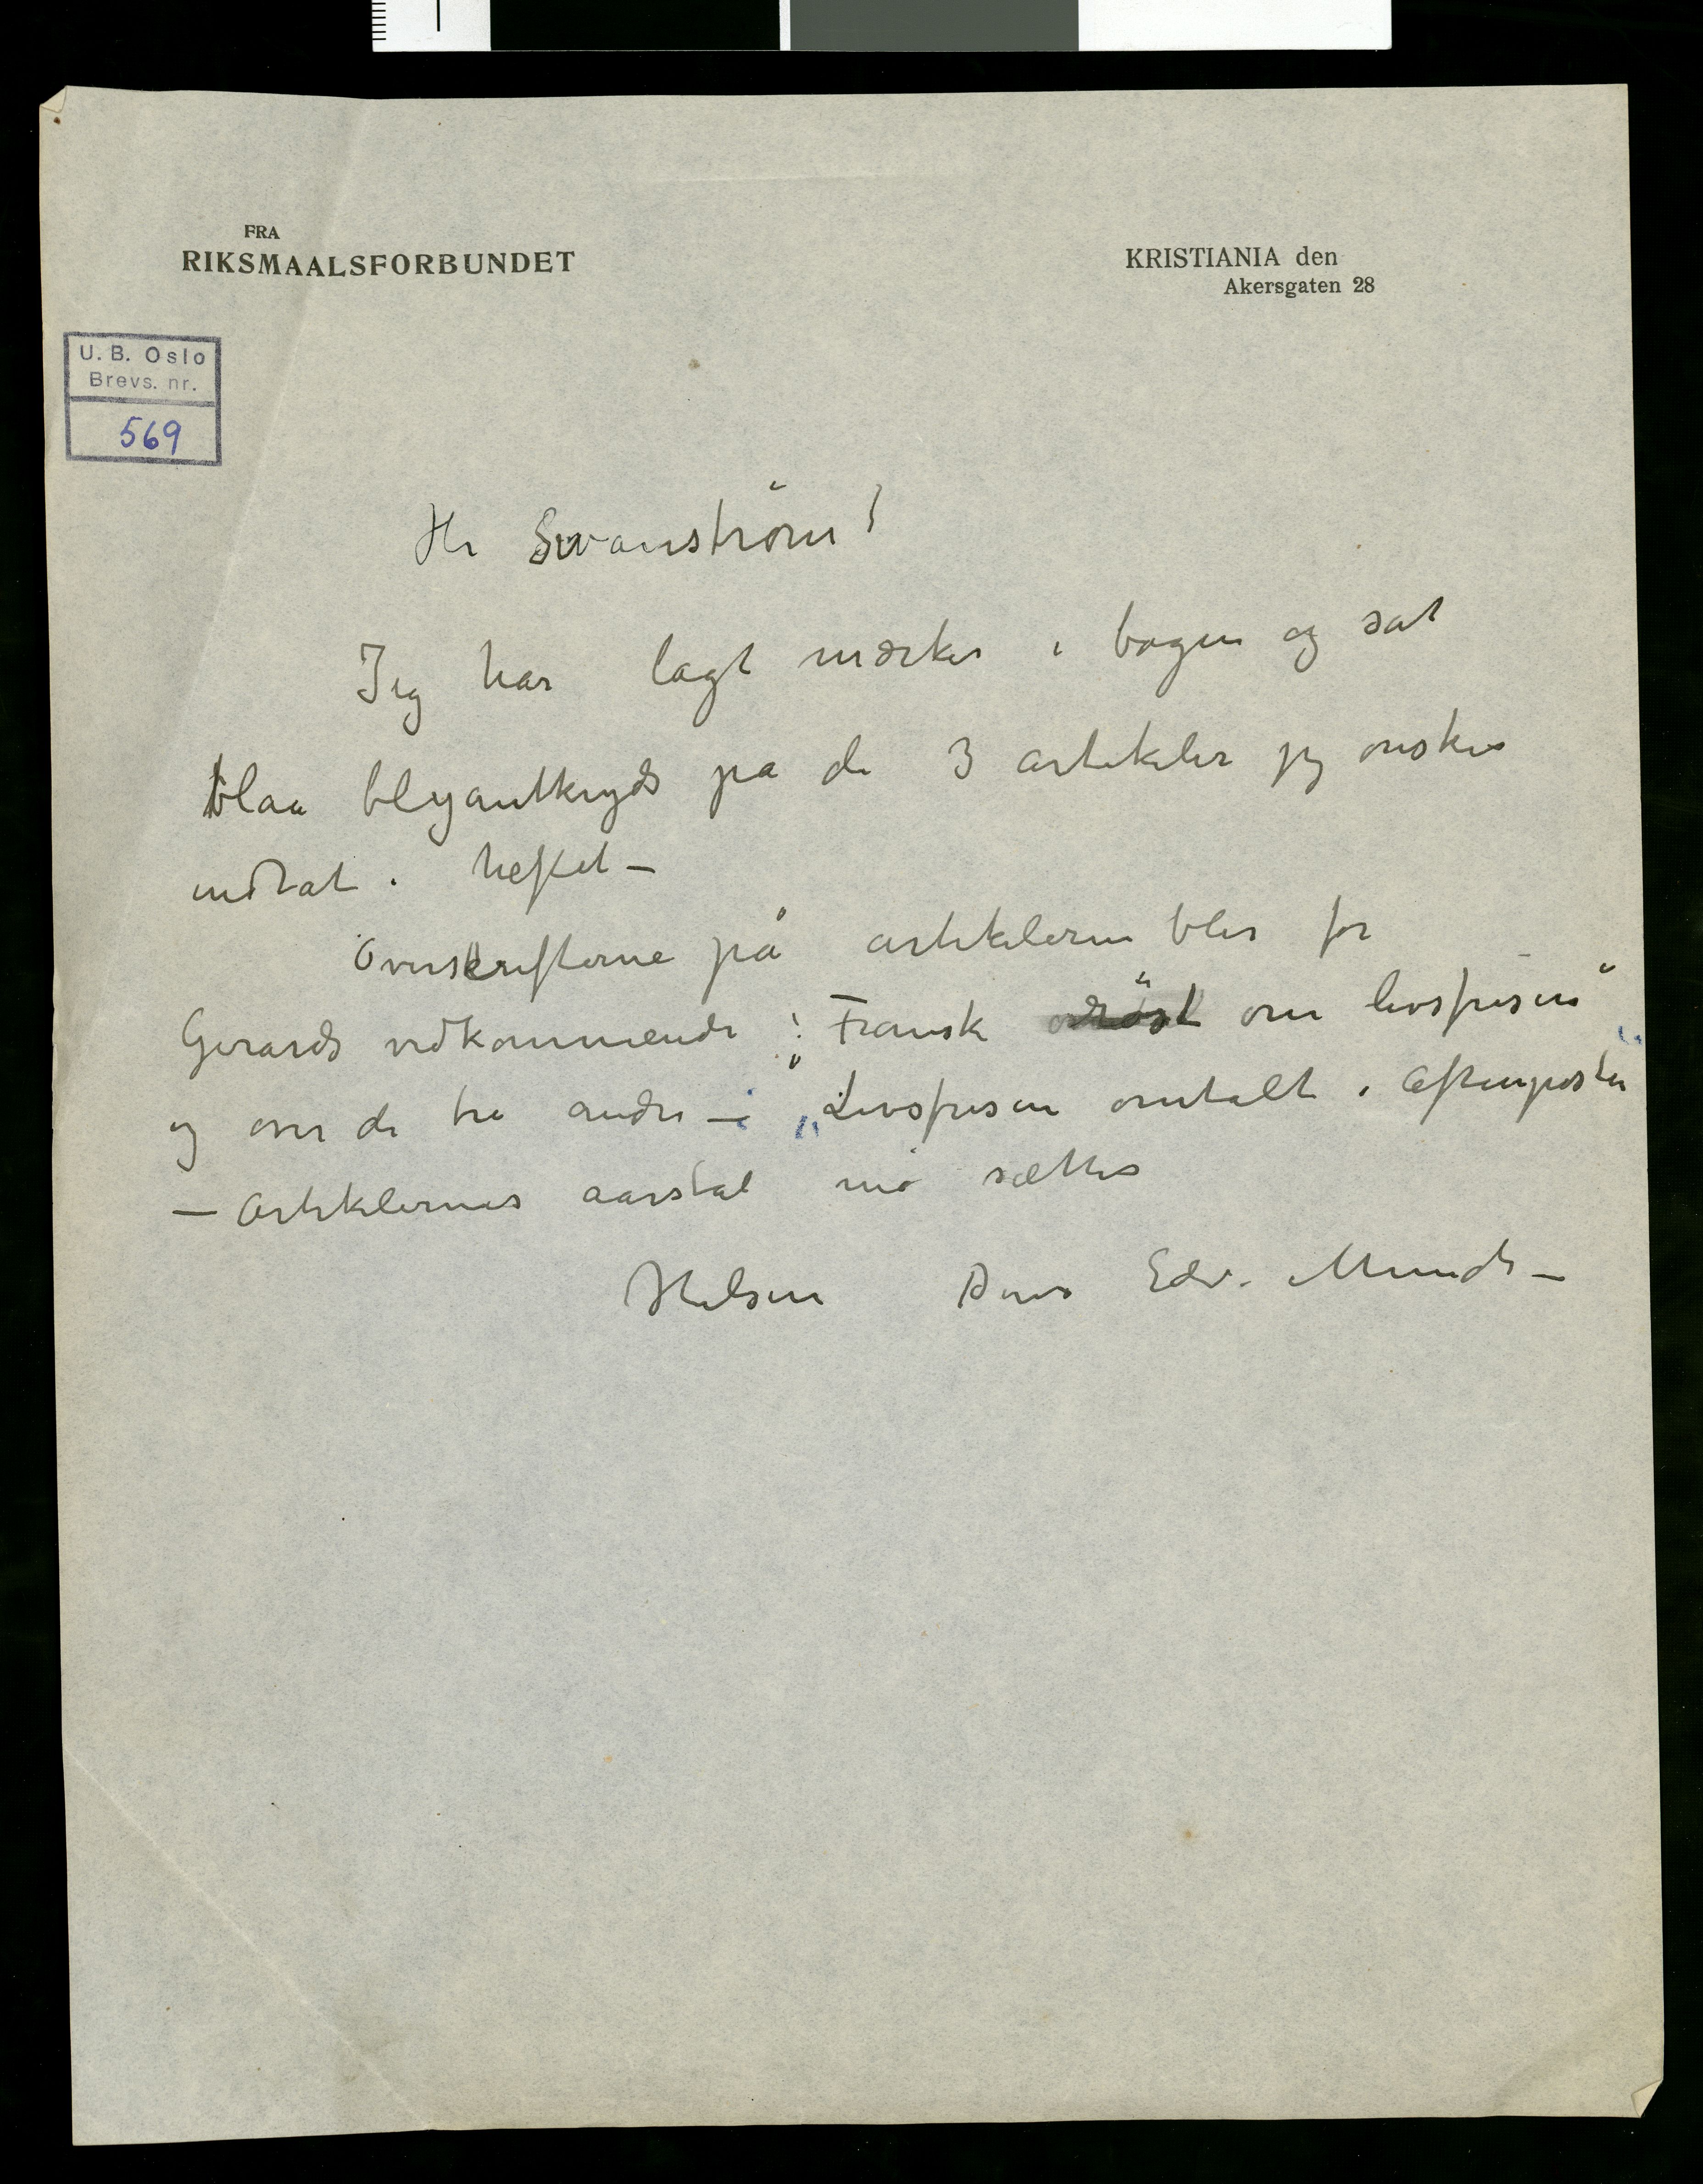 FRA
RIKSMAALSFORBUNDET
KRISTIANIA den
Akersgaten 28
U. B. Oslo
Brevs. nr.
569
Hr Swanström!
Jeg har lagt mærker i bogen og sat
blaa blyantkryds på de 3 artikeler jeg ønsker
indsat i heftet –
Overskrifterne på artikelerne blir for
Gerards vedkommende : „Fransk röst om livsfrisen“
og over de tre andre – „Livsfrisen omtalt i Aftenposten“
– Artiklernes aarstal må sættes
Hilsen Deres Edv. Munch –